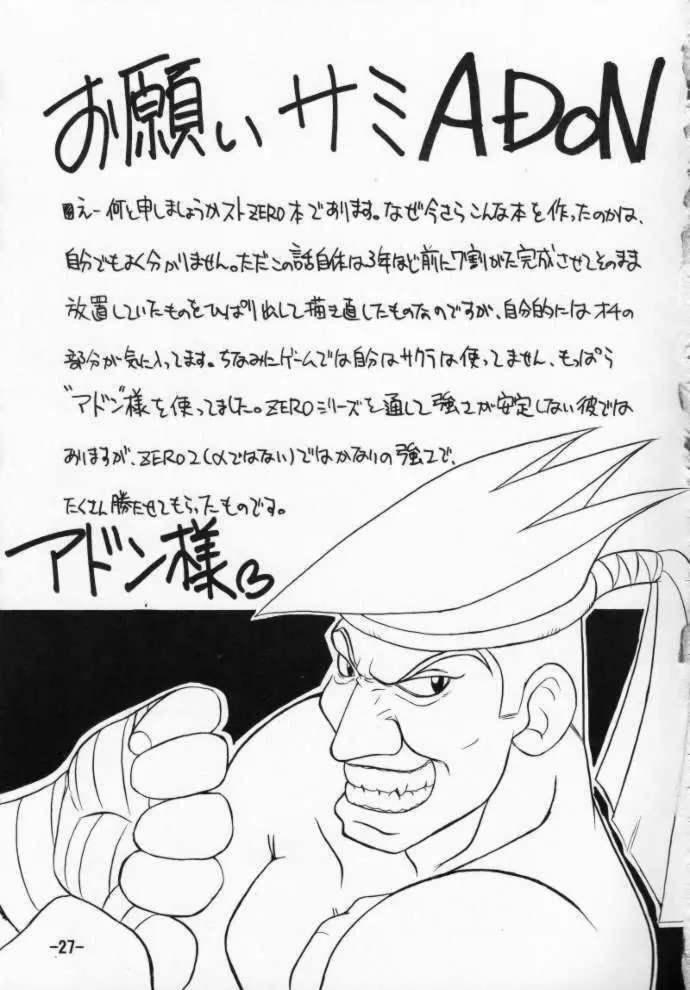 お願い サミ ADON
え-何と申しましょうかストZERO本であります。なぜ今さらこんな本を作ったのかは、
自分でもよく分かりません。ただこの話自体は3年ほど前に7割がた完成させてそのまま
放置していたものをひっぱり出して描き直したものなのですが、自分的にはオチの
部分が気に入ってます。ちなみにゲームでは自分はサクラは使ってません、もっぱら
"アドン"様を使ってました。ZEROシリーズを通して強さが安定しない彼では
ありますが、ZERO2(αではない)ではかなりの強さで、
たくさん勝たせてもらったものです。
アドン様
-27-